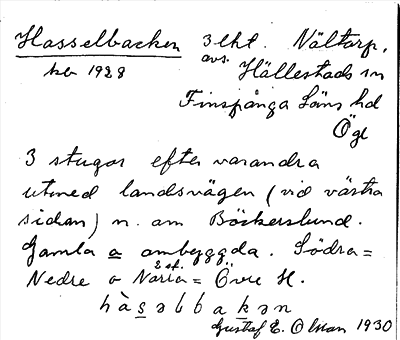 Hasselbacken 3 lht. Nältorp,
avs.
ker 1928 Hällestads sn
Finspånga Läns hd
Ögl
3 stugor efter varandra
utmed landsvägen (vid västra
sidan) n. om Böckerslund.
Gamla o ombyggda. Södra =
2 st.
Nedre o Norra = Övre H.
hàsəlbakən
Gustaf E. Olman 1930